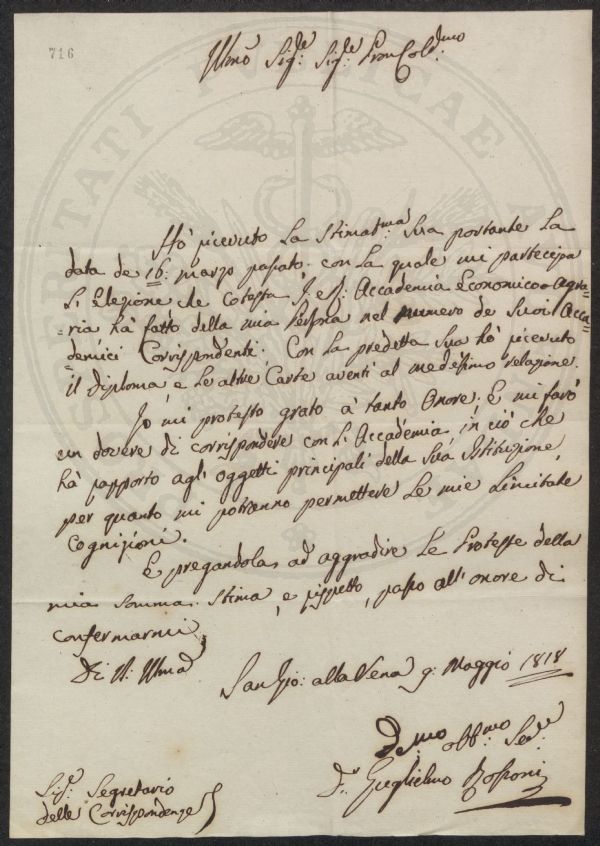 716
Illmo Sigre: Sigre: Pron Coldmo:
Hò ricevuto la Stimatma: Sua portante la
data de 16: marzo passato con la quale mi partecipa
l'elezione che cotesta I. e R. Accademia Economico-Agra=
=ria hà fatto della mia Persona nel numero de Suoi Acca=
demici Corrispondenti. Con la predetta Sua hò ricevuto
il Diploma, e le altre Carte aventi al medesimo relazione.
Io mi protesto grato à tanto Onore; E mi farò
un dovere di corrispondere con l'Accademia, in ciò che
hà rapporto agl'oggetti principali della Sua Istituzione,
per quanto mi potranno permettere le mie limitate
Cognizioni.
E pregandola ad aggradire le Proteste della
mia somma stima, e rispetto, passo all'onore di
confermarmi
Di V: Illma
San Gio: alla Vena 9: Maggio 1818
Dmo obbmo: Serre:
Dr: Guglielmo
Sigr: Segretario
delle Corrispondenze
SPERITATI PUBLICAE A